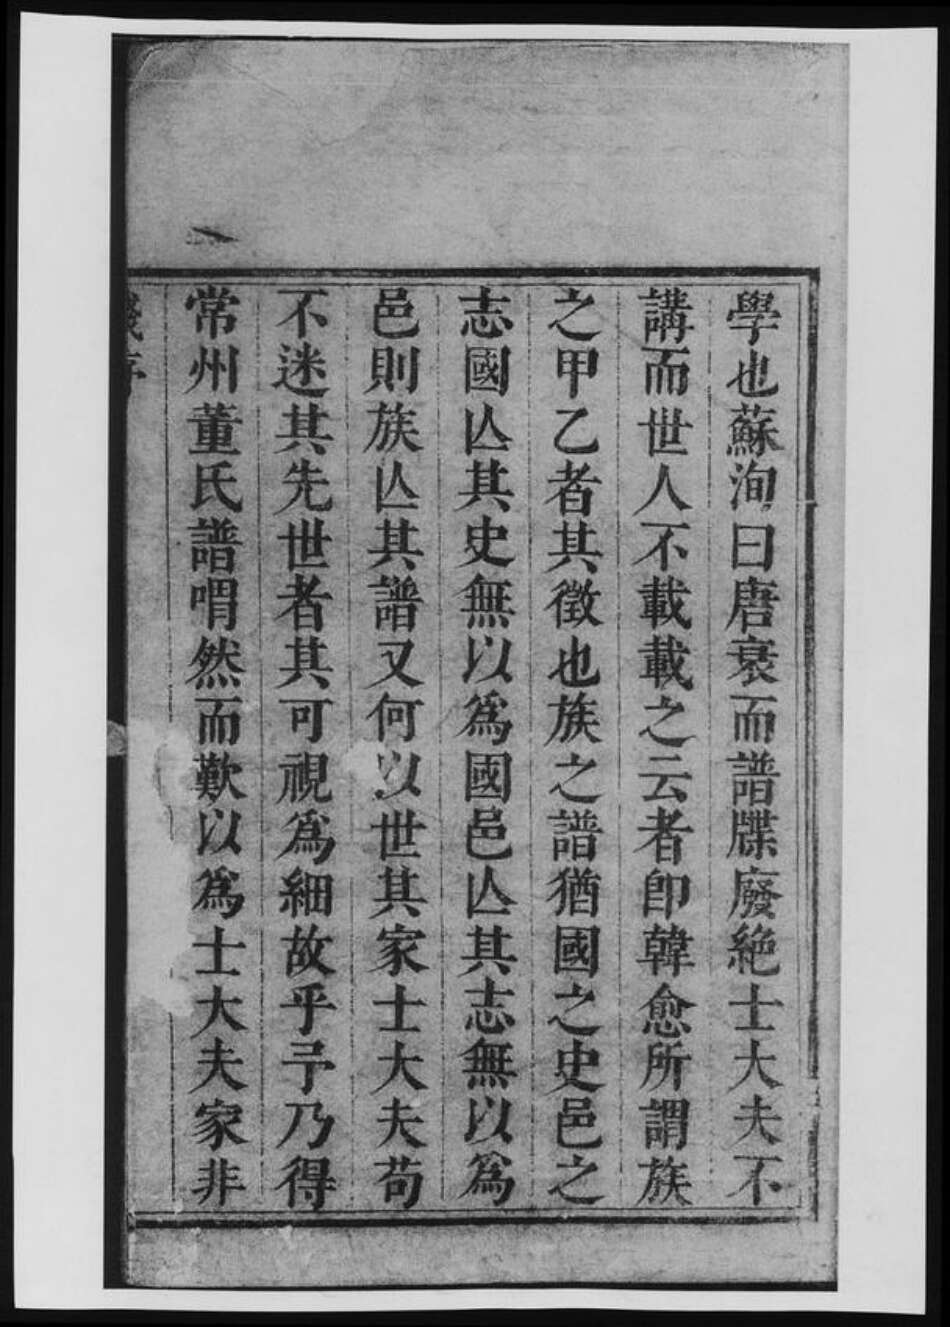 學也蘇洵曰唐衰而譜牒廢絕士大夫不
講而世人不載載之云者卽韓愈所謂族
之甲乙者其徵也族之譜猶國之史邑之
志國亾其史無以爲國邑亾其志無以爲
邑則族亾其譜又何以世其家士大夫苟
不迷其先世者其可視爲細故乎予乃得
常州董氏譜喟然而歎以爲士大夫家非
序